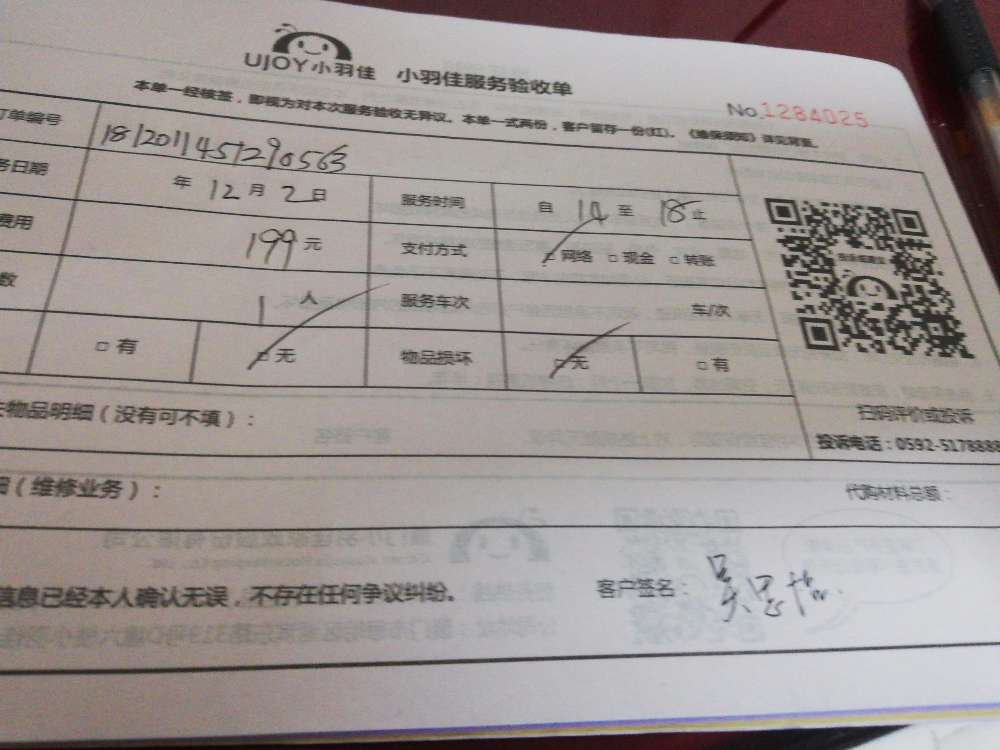 UJOY小羽佳 小羽佳服务验收单
No.1284025
本单一经核签,即视为对本次服务验收无异议。本单一式两份,客户留存一份(红)。《维保须知》详见背面。
订单编号 1812011451290563
务日期 年 12 月 2 日 服务时间 自 14 至 18 止
费用 199 元 支付方式 网络 □ 现金 □ 转账
数 1 人 服务车次 车/次
□ 有 □ 无 物品损坏 □ 无 □ 有
扫码评价或投诉
投诉电话:0592-5178888
物品明细(没有可不填):
细(维修业务): 代购材料总额:
信息已经本人确认无误,不存在任何争议纠纷。 客户签名:吴思